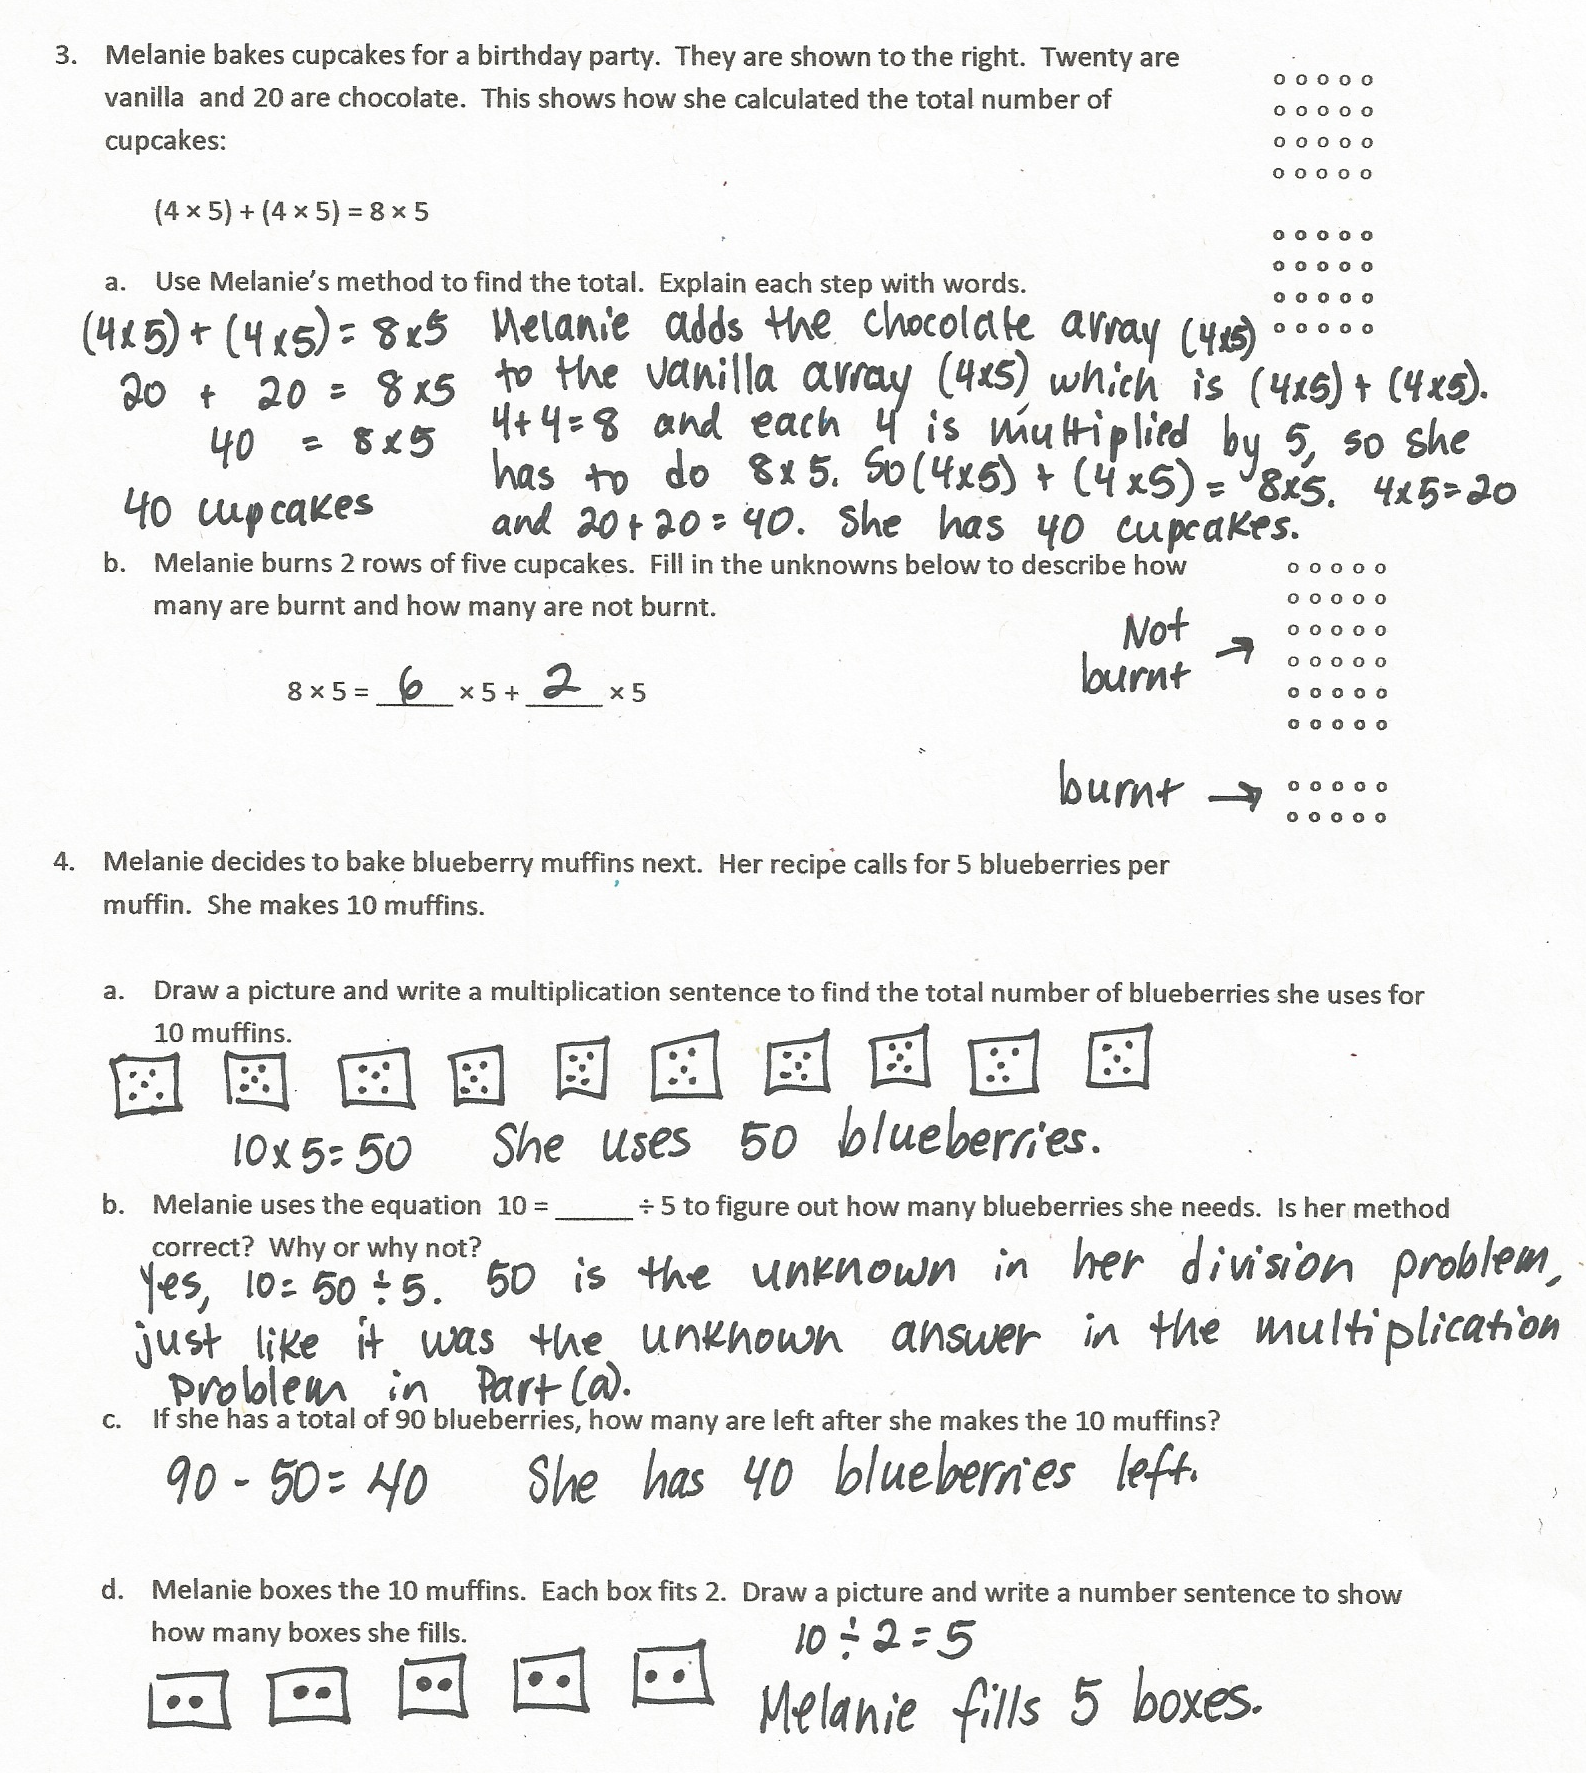 3. Melanie bakes cupcakes for a birthday party. They are shown to the right. Twenty are
vanilla and 20 are chocolate. This shows how she calculated the total number of
cupcakes:
(4 × 5) + (4 × 5) = 8 × 5
a. Use Melanie's method to find the total. Explain each step with words.
(4x5) + (4x5) = 8x5
20 + 20 = 8x5
40 = 8x5
40 cupcakes
Melanie adds the chocolate array (4x5)
to the vanilla array (4x5) which is (4x5) + (4x5).
4+4=8 and each 4 is multiplied by 5, so she
has to do 8x5. So (4x5) + (4x5) = 8x5. 4x5=20
and 20+20=40. She has 40 cupcakes.
b. Melanie burns 2 rows of five cupcakes. Fill in the unknowns below to describe how
many are burnt and how many are not burnt.
8 × 5 = 6 × 5 + 2 × 5
Not
burnt →
burnt →
4. Melanie decides to bake blueberry muffins next. Her recipe calls for 5 blueberries per
muffin. She makes 10 muffins.
a. Draw a picture and write a multiplication sentence to find the total number of blueberries she uses for
10 muffins.
10x5=50 She uses 50 blueberries.
b. Melanie uses the equation 10 = _____ ÷ 5 to figure out how many blueberries she needs. Is her method
correct? Why or why not?
Yes, 10=50÷5. 50 is the unknown in her division problem,
just like it was the unknown answer in the multiplication
problem in Part (a).
c. If she has a total of 90 blueberries, how many are left after she makes the 10 muffins?
90 - 50 = 40 She has 40 blueberries left.
d. Melanie boxes the 10 muffins. Each box fits 2. Draw a picture and write a number sentence to show
how many boxes she fills.
10 ÷ 2 = 5
Melanie fills 5 boxes.